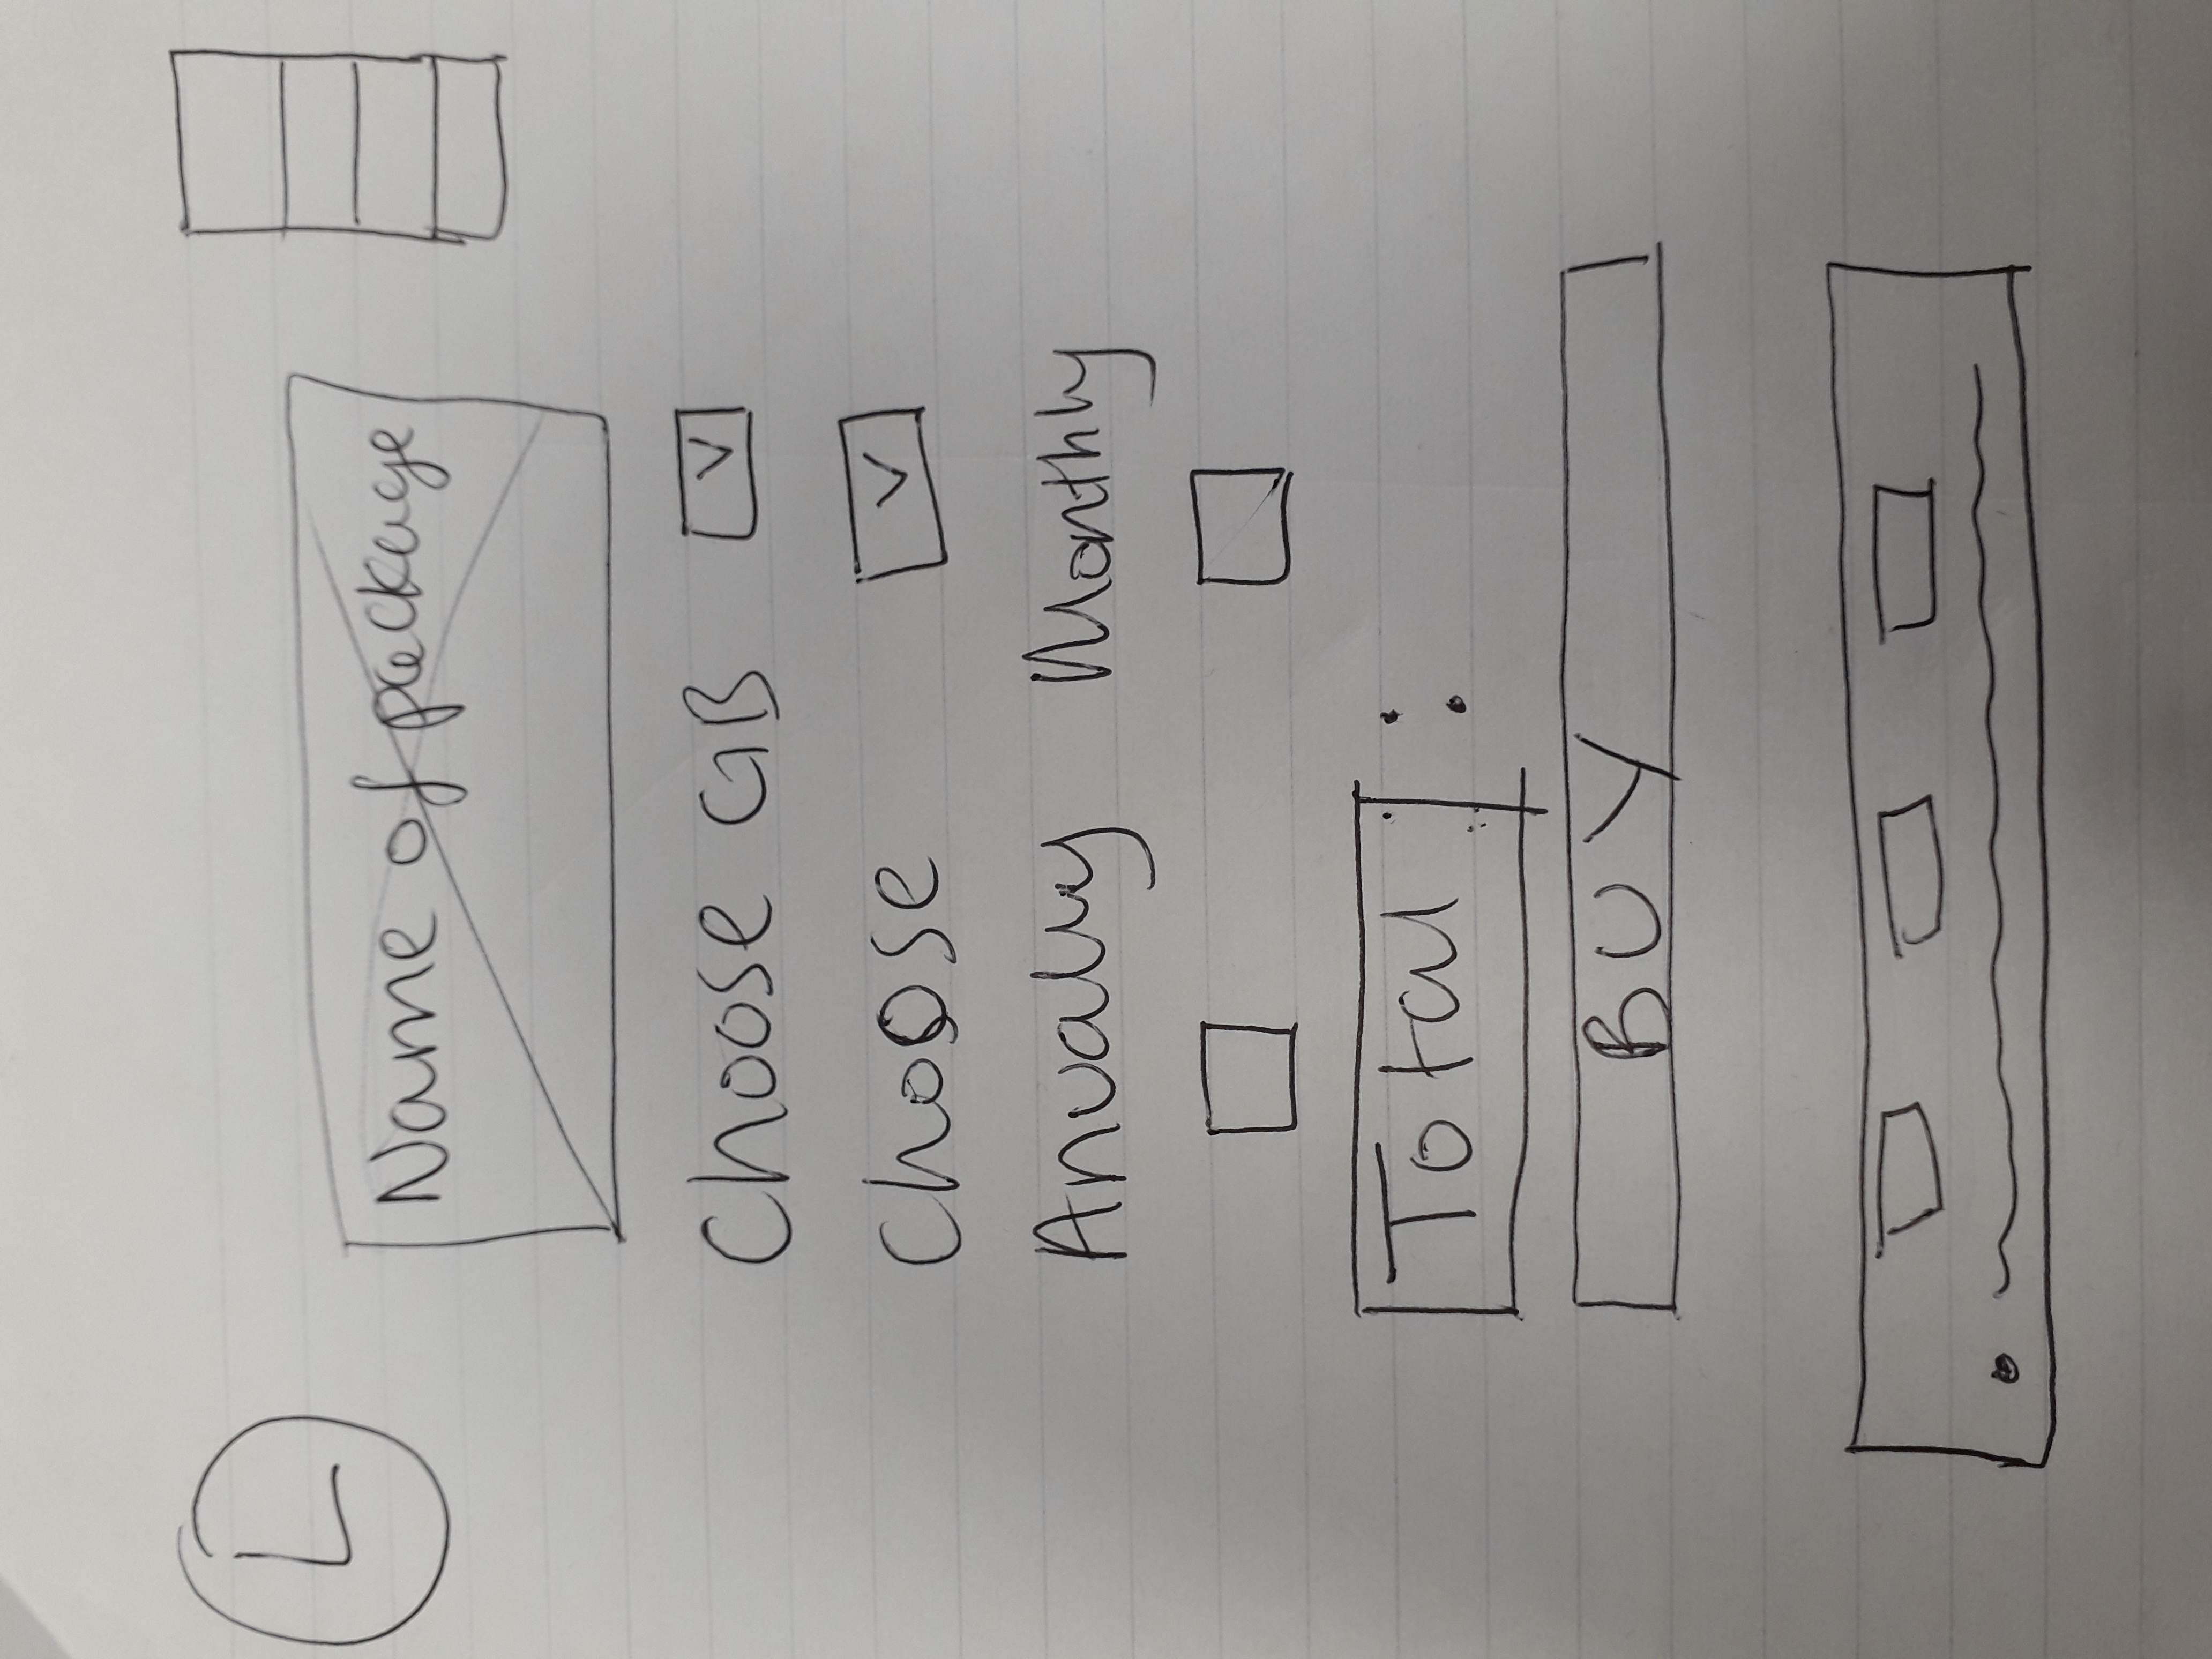 L
Name of package
Choose GB V
Choose V
Anually Monthly
Total :
BUY